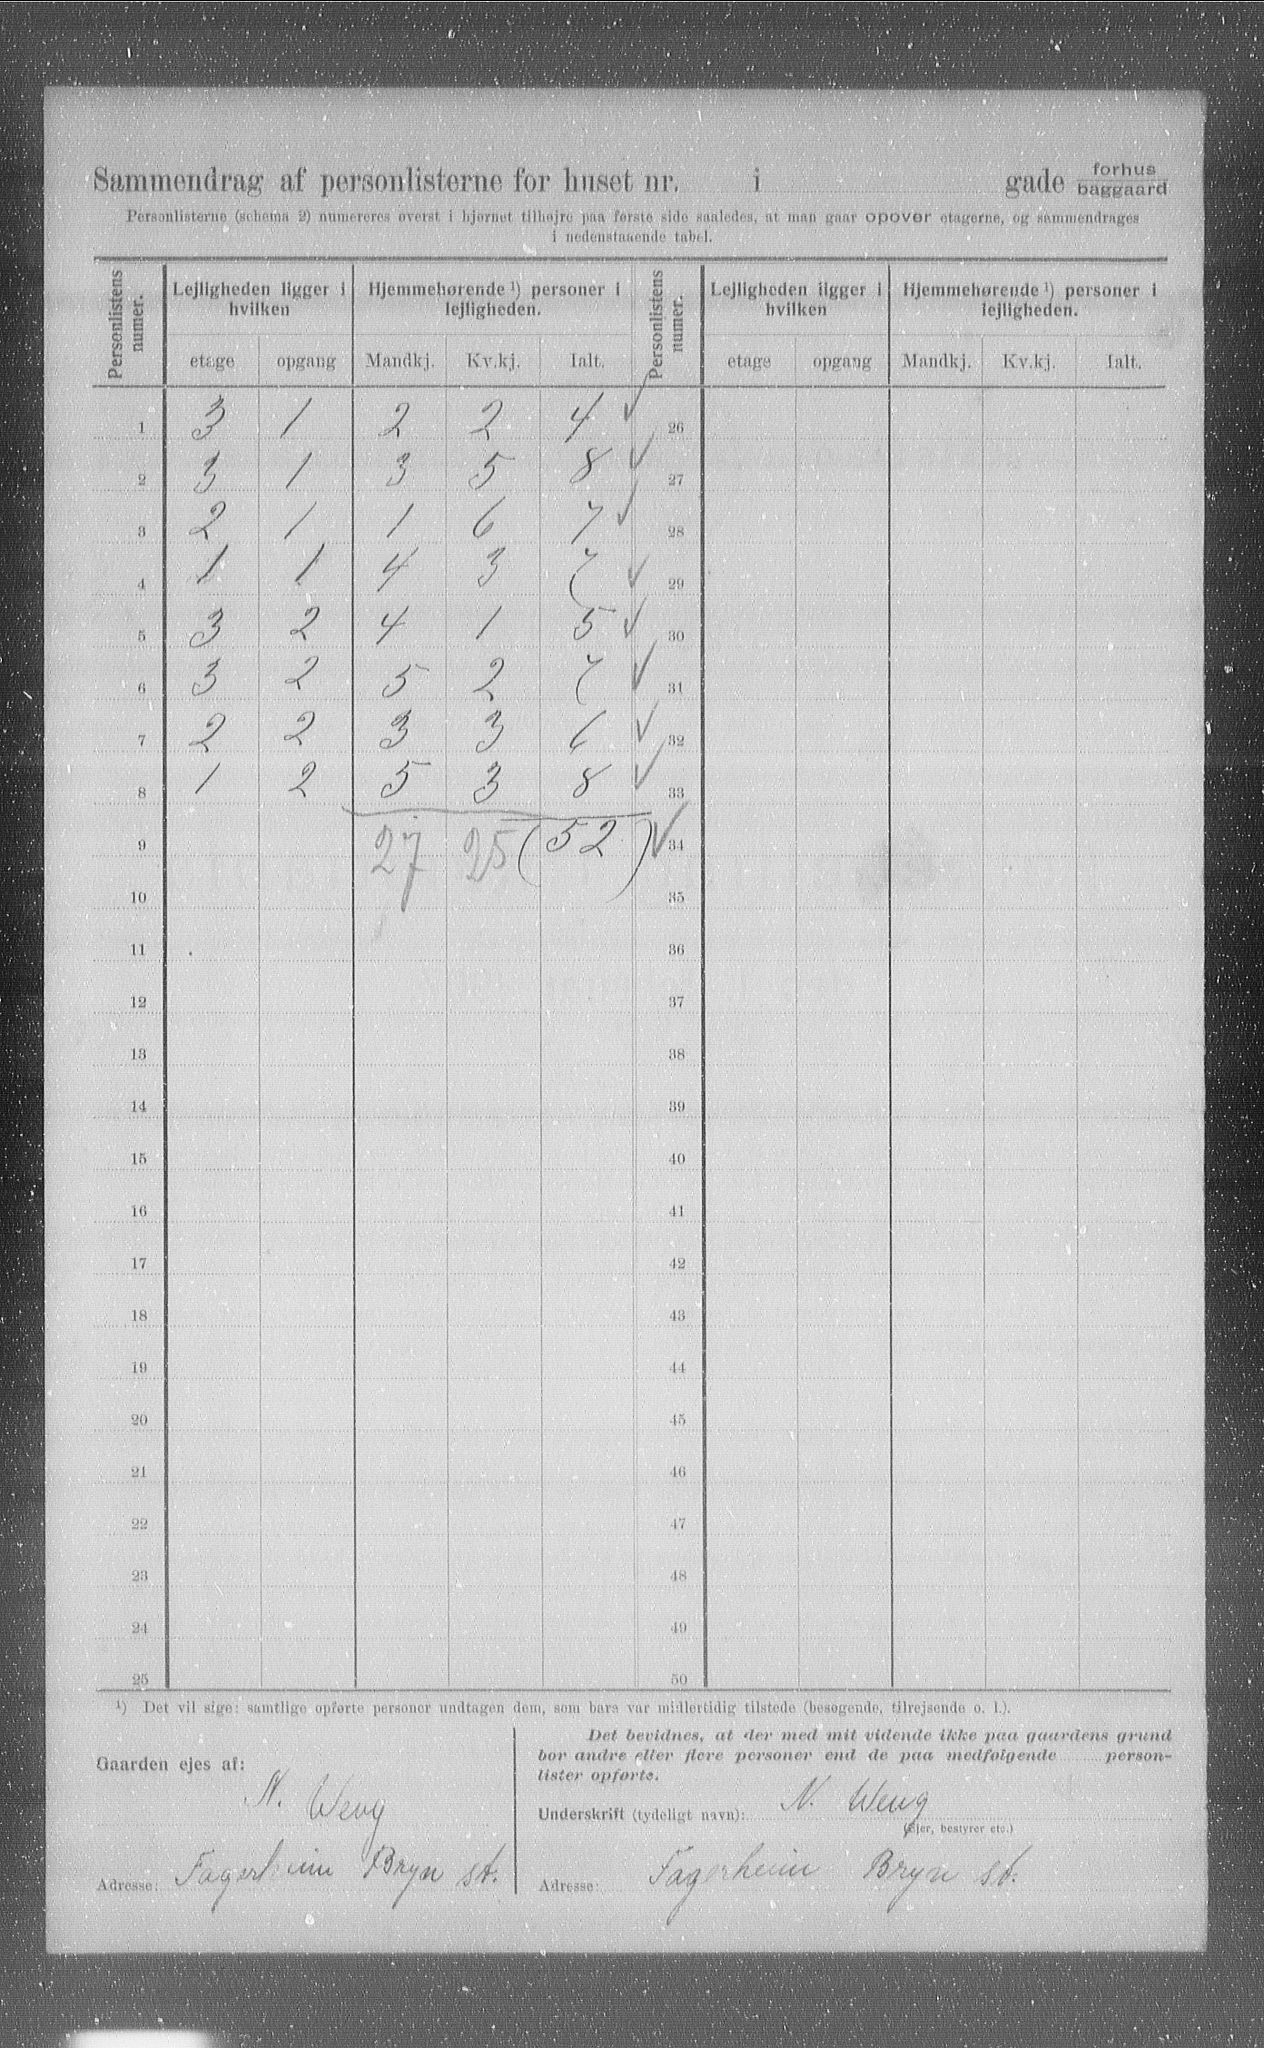 Sammendrag af personlisterne for huset nr. i gade forhus baggaard
Personlisterne (schema 2) numereres øverst i hjørnet tilhøjre paa første side saaledes, at man gaar opover etagerne, og sammendrages
i nedenstaaende tabel.
Personlistens numer. Lejligheden ligger i hvilken Hjemmehørende ¹) personer i lejligheden. Personlistens numer. Lejligheden ligger i hvilken Hjemmehørende ¹) personer i lejligheden.
etage opgang Mandkj. Kv.kj. Ialt. etage opgang Mandkj. Kv.kj. Ialt.
1 3 1 2 2 4 ✓ 26
2 3 1 3 5 8 ✓ 27
3 2 1 1 6 7 ✓ 28
4 1 1 4 3 7 ✓ 29
5 3 2 4 1 5 ✓ 30
6 3 2 5 2 7 ✓ 31
7 2 2 3 3 6 ✓ 32
8 1 2 5 3 8 ✓ 33
9 27 25 (52) ✓ 34
10 35
11 36
12 37
13 38
14 39
15 40
16 41
17 42
18 43
19 44
20 45
21 46
22 47
23 48
24 49
25 50
¹) Det vil sige: samtlige opførte personer undtagen dem, som bare var midlertidig tilstede (besøgende, tilrejsende o. l.).
Gaarden ejes af:
N. Weng
Adresse: Fagerheim Bryn st.
Det bevidnes, at der med mit vidende ikke paa gaardens grund
bor andre eller flere personer end de paa medfølgende person-
lister opførte.
Underskrift (tydeligt navn): N. Weng
(Ejer, bestyrer etc.)
Adresse: Fagerheim Bryn st.